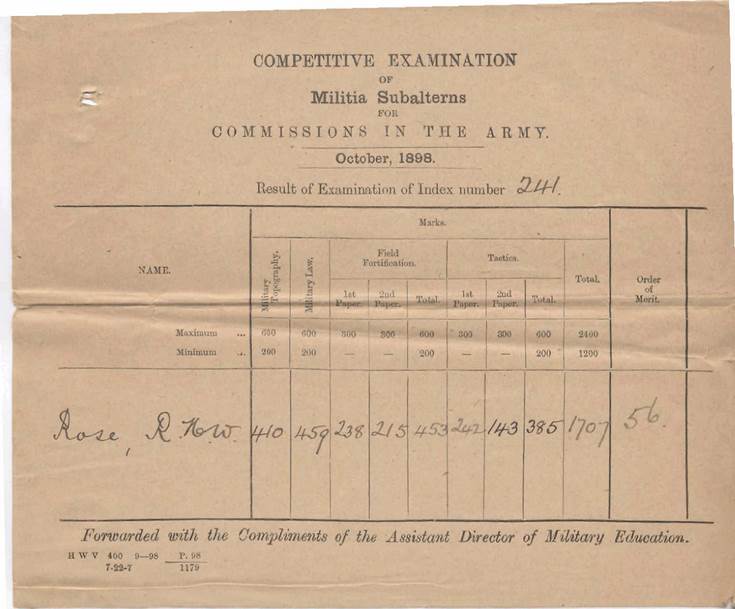 COMPETITIVE EXAMINATION
OF
Militia Subalterns
FOR
COMMISSIONS IN THE ARMY.
October, 1898.
Result of Examination of Index number 241.
NAME.
Marks.
Order of Merit.
Military Topography.
Military Law.
Field Fortification.
Tactics.
Total.
1st Paper. 2nd Paper. Total. 1st Paper. 2nd Paper. Total.
Maximum ... 600 600 300 300 600 300 300 600 2400
Minimum ... 200 200 — — 200 — — 200 1200
Rose, R.H.W. 410 459 238 215 453 242 143 385 1707 56.
Forwarded with the Compliments of the Assistant Director of Military Education.
H W V 400 9—98 P. 98
7-22-7 1179